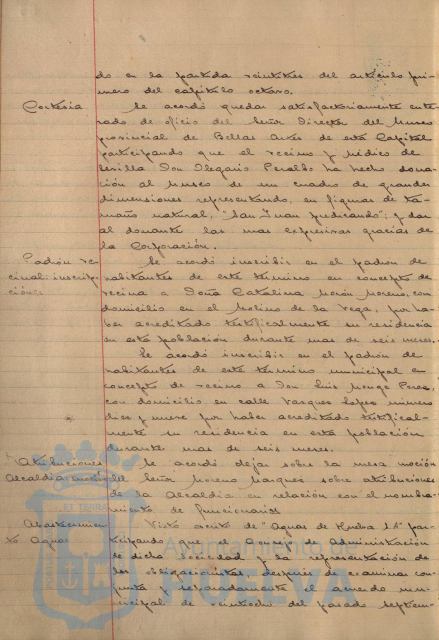 do en la partida veintitres del artículo pri-
mero del capítulo octavo.
Cortesia
Se acordó quedar satisfactoriamente ente-
rado de oficio del Señor Director del Museo
provincial de Bellas Artes de esta Capital
participando que el vecino y médico de
Sevilla Don Olegario Peralbo ha hecho dona-
ción al Museo de un cuadro de grandes
dimensiones representando, en figuras de ta-
maño natural, "San Juan predicando"; y dar
al donante las mas expresivas gracias de
la Corporación.
Padrón ve-
cinal: inscrip-
ciones
Se acordó inscribir en el padron de
habitantes de este término en concepto de
vecina a Doña Catalina Morón Moreno, con
domicilio en el Molino de la Vega, por ha-
ber acreditado testificalmente su residencia
en esta población durante mas de seis meses.
Se acordó inscribir en el padrón de
habitantes de este término municipal en
concepto de vecino a Don Luis Monge Perea,
con domicilio en calle Vazquez Lopez número
diez y nueve por haber acreditado testifical-
mente su residencia en esta población
durante mas de seis meses.
Atribuciones
Alcaldia: moción
Se acordó dejar sobre la mesa moción
del Señor Moreno Marquez sobre atribuciones
de la Alcaldia en relación con el nombra-
miento de funcionarios.
Abastecimien-
to Aguas
Visto escrito de "Aguas de Huelva S A" par-
ticipando que el Consejo de Administración
de dicha sociedad y la representación de
los obligacionistas, después de examinar con-
junta y separadamente el acuerdo mu-
nicipal de veintiocho del pasado septiem-
Ayuntamiento
HUELVA